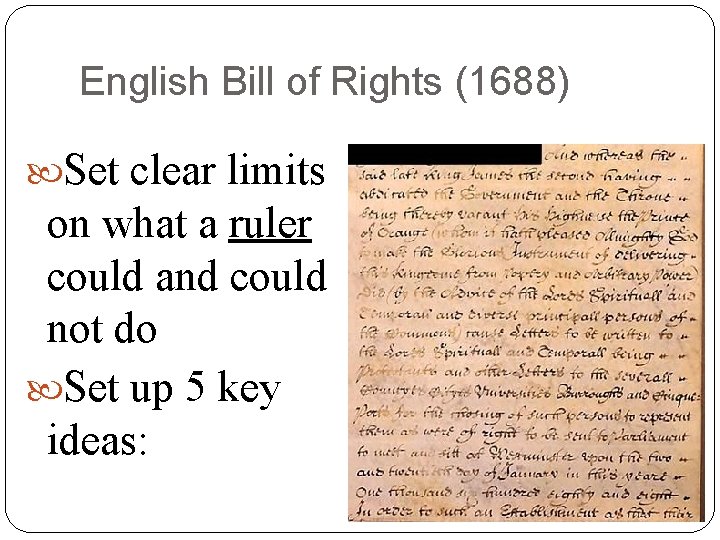 English Bill of Rights (1688)
Set clear limits
on what a ruler
could and could
not do
Set up 5 key
ideas:
And whereas the
said late King James the second having
abdicated the Government and the Throne
being thereby vacant His Highnesse the Prince
of Orange (whom it hath pleased Almighty God
to make the Glorious Instrument of delivering
this Kingdome from Popery and Arbitrary Power
Did (by the Advice of the Lords Spirituall and
Temporall and diverse principall persons of
the Commons) cause Letters to be written to
the Lords Spirituall and Temporall being
Protestants and other Letters to the severall
Countyes Cityes Universities Burroughs and Cinque
Ports for the choosing of such persons to represent
them as were of right to be sent to Parliament
to meet and sitt at Westminster upon the two
and twentyeth day of January in this yeare
One thousand six hundred eighty and eight
In order to such an Establishment as that their